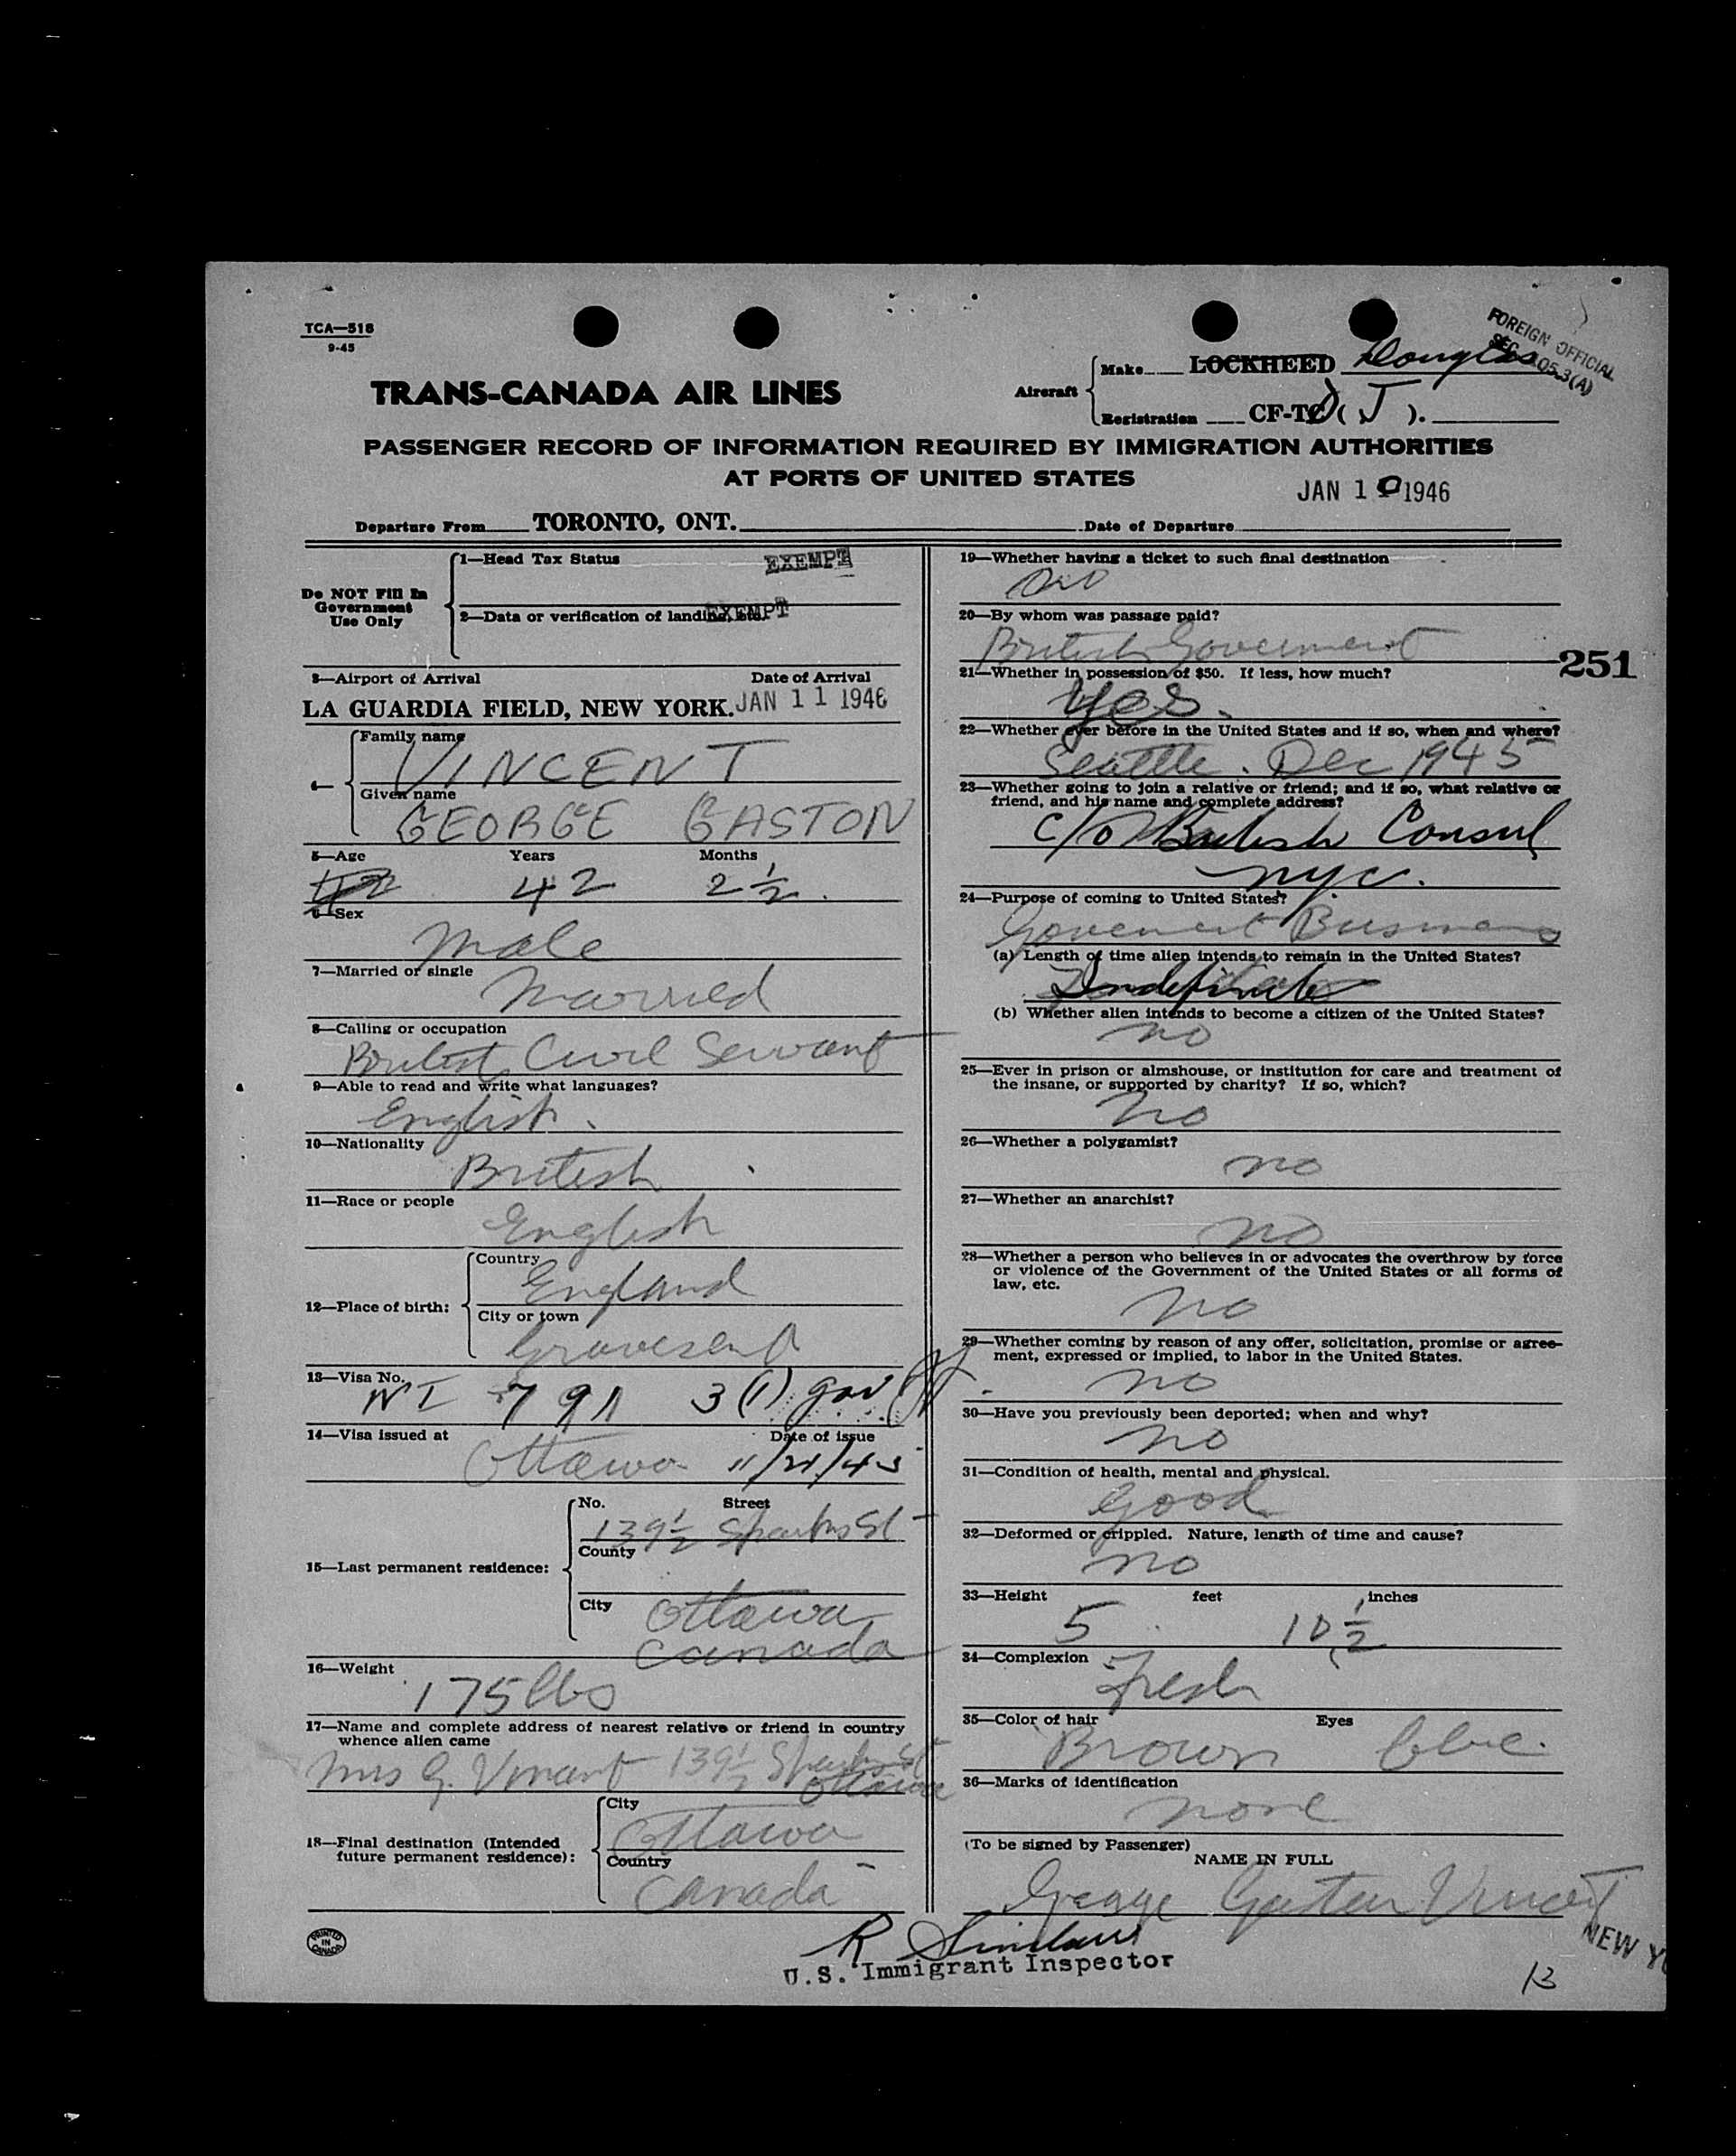 TCA—518
9-45
FOREIGN OFFICIAL
SEC. 105.3(A)
TRANS-CANADA AIR LINES
Aircraft
Make LOCKHEED Douglas
Registration CF-TCD ( J ).
PASSENGER RECORD OF INFORMATION REQUIRED BY IMMIGRATION AUTHORITIES
AT PORTS OF UNITED STATES
JAN 10 1946
Departure From TORONTO, ONT. Date of Departure
Do NOT Fill In
Government
Use Only
1—Head Tax Status EXEMPT
2—Data or verification of landing, etc. EXEMPT
3—Airport of Arrival Date of Arrival
LA GUARDIA FIELD, NEW YORK. JAN 11 1946
4—
Family name
VINCENT
Given name
GEORGE GASTON
5—Age Years Months
42 42 2 1/2.
6—Sex
Male
7—Married or single
Married
8—Calling or occupation
British Civil Servant
9—Able to read and write what languages?
English.
10—Nationality
British
11—Race or people
English
12—Place of birth:
Country
England
City or town
Gravesend
13—Visa No.
NI 791 3(1) gov
14—Visa issued at Date of issue
Ottawa 11/21/45
15—Last permanent residence:
No. Street
139 1/2 Sparks St
County
City Ottawa
Canada
16—Weight
175 lbs
17—Name and complete address of nearest relative or friend in country
whence alien came
Mrs G. Vincent 139 1/2 Sparks St
Ottawa
18—Final destination (Intended
future permanent residence):
City
Ottawa
Country
Canada
19—Whether having a ticket to such final destination
no
20—By whom was passage paid?
British Government
251
21—Whether in possession of $50. If less, how much?
Yes.
22—Whether ever before in the United States and if so, when and where?
Seattle. Dec 1945
23—Whether going to join a relative or friend; and if so, what relative or
friend, and his name and complete address?
c/o British Consul
nyc.
24—Purpose of coming to United States?
Goverment Business
(a) Length of time alien intends to remain in the United States?
Indefinite
(b) Whether alien intends to become a citizen of the United States?
no
25—Ever in prison or almshouse, or institution for care and treatment of
the insane, or supported by charity? If so, which?
No
26—Whether a polygamist?
no
27—Whether an anarchist?
no
28—Whether a person who believes in or advocates the overthrow by force
or violence of the Government of the United States or all forms of
law, etc.
no
29—Whether coming by reason of any offer, solicitation, promise or agree-
ment, expressed or implied, to labor in the United States.
no
30—Have you previously been deported; when and why?
no
31—Condition of health, mental and physical.
Good
32—Deformed or crippled. Nature, length of time and cause?
no
33—Height feet inches
5 10 1/2
34—Complexion
Fresh
35—Color of hair Eyes
Brown blue.
36—Marks of identification
none
(To be signed by Passenger)
NAME IN FULL
George Gaston Vincent
PRINTED
IN
CANADA
R Sinclair
U.S. Immigrant Inspector
NEW YO
13